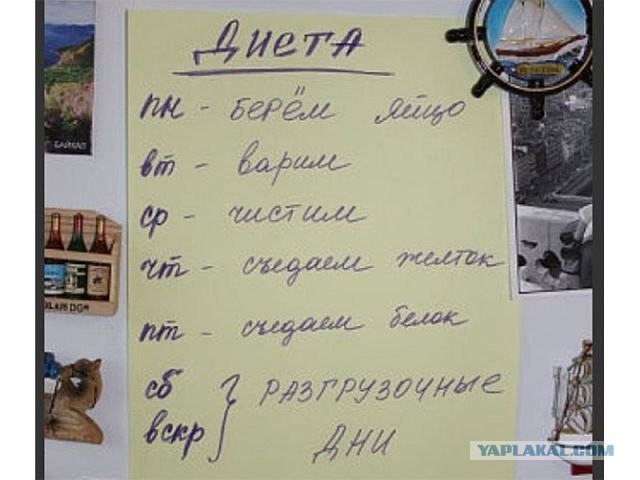 ДИЕТА
пн - берём яйцо
вт - варим
ср - чистим
чт - съедаем желток
пт - съедаем белок
сб
вскр } РАЗГРУЗОЧНЫЕ
ДНИ
БАЙКАЛ
YAPLAKAL.COM